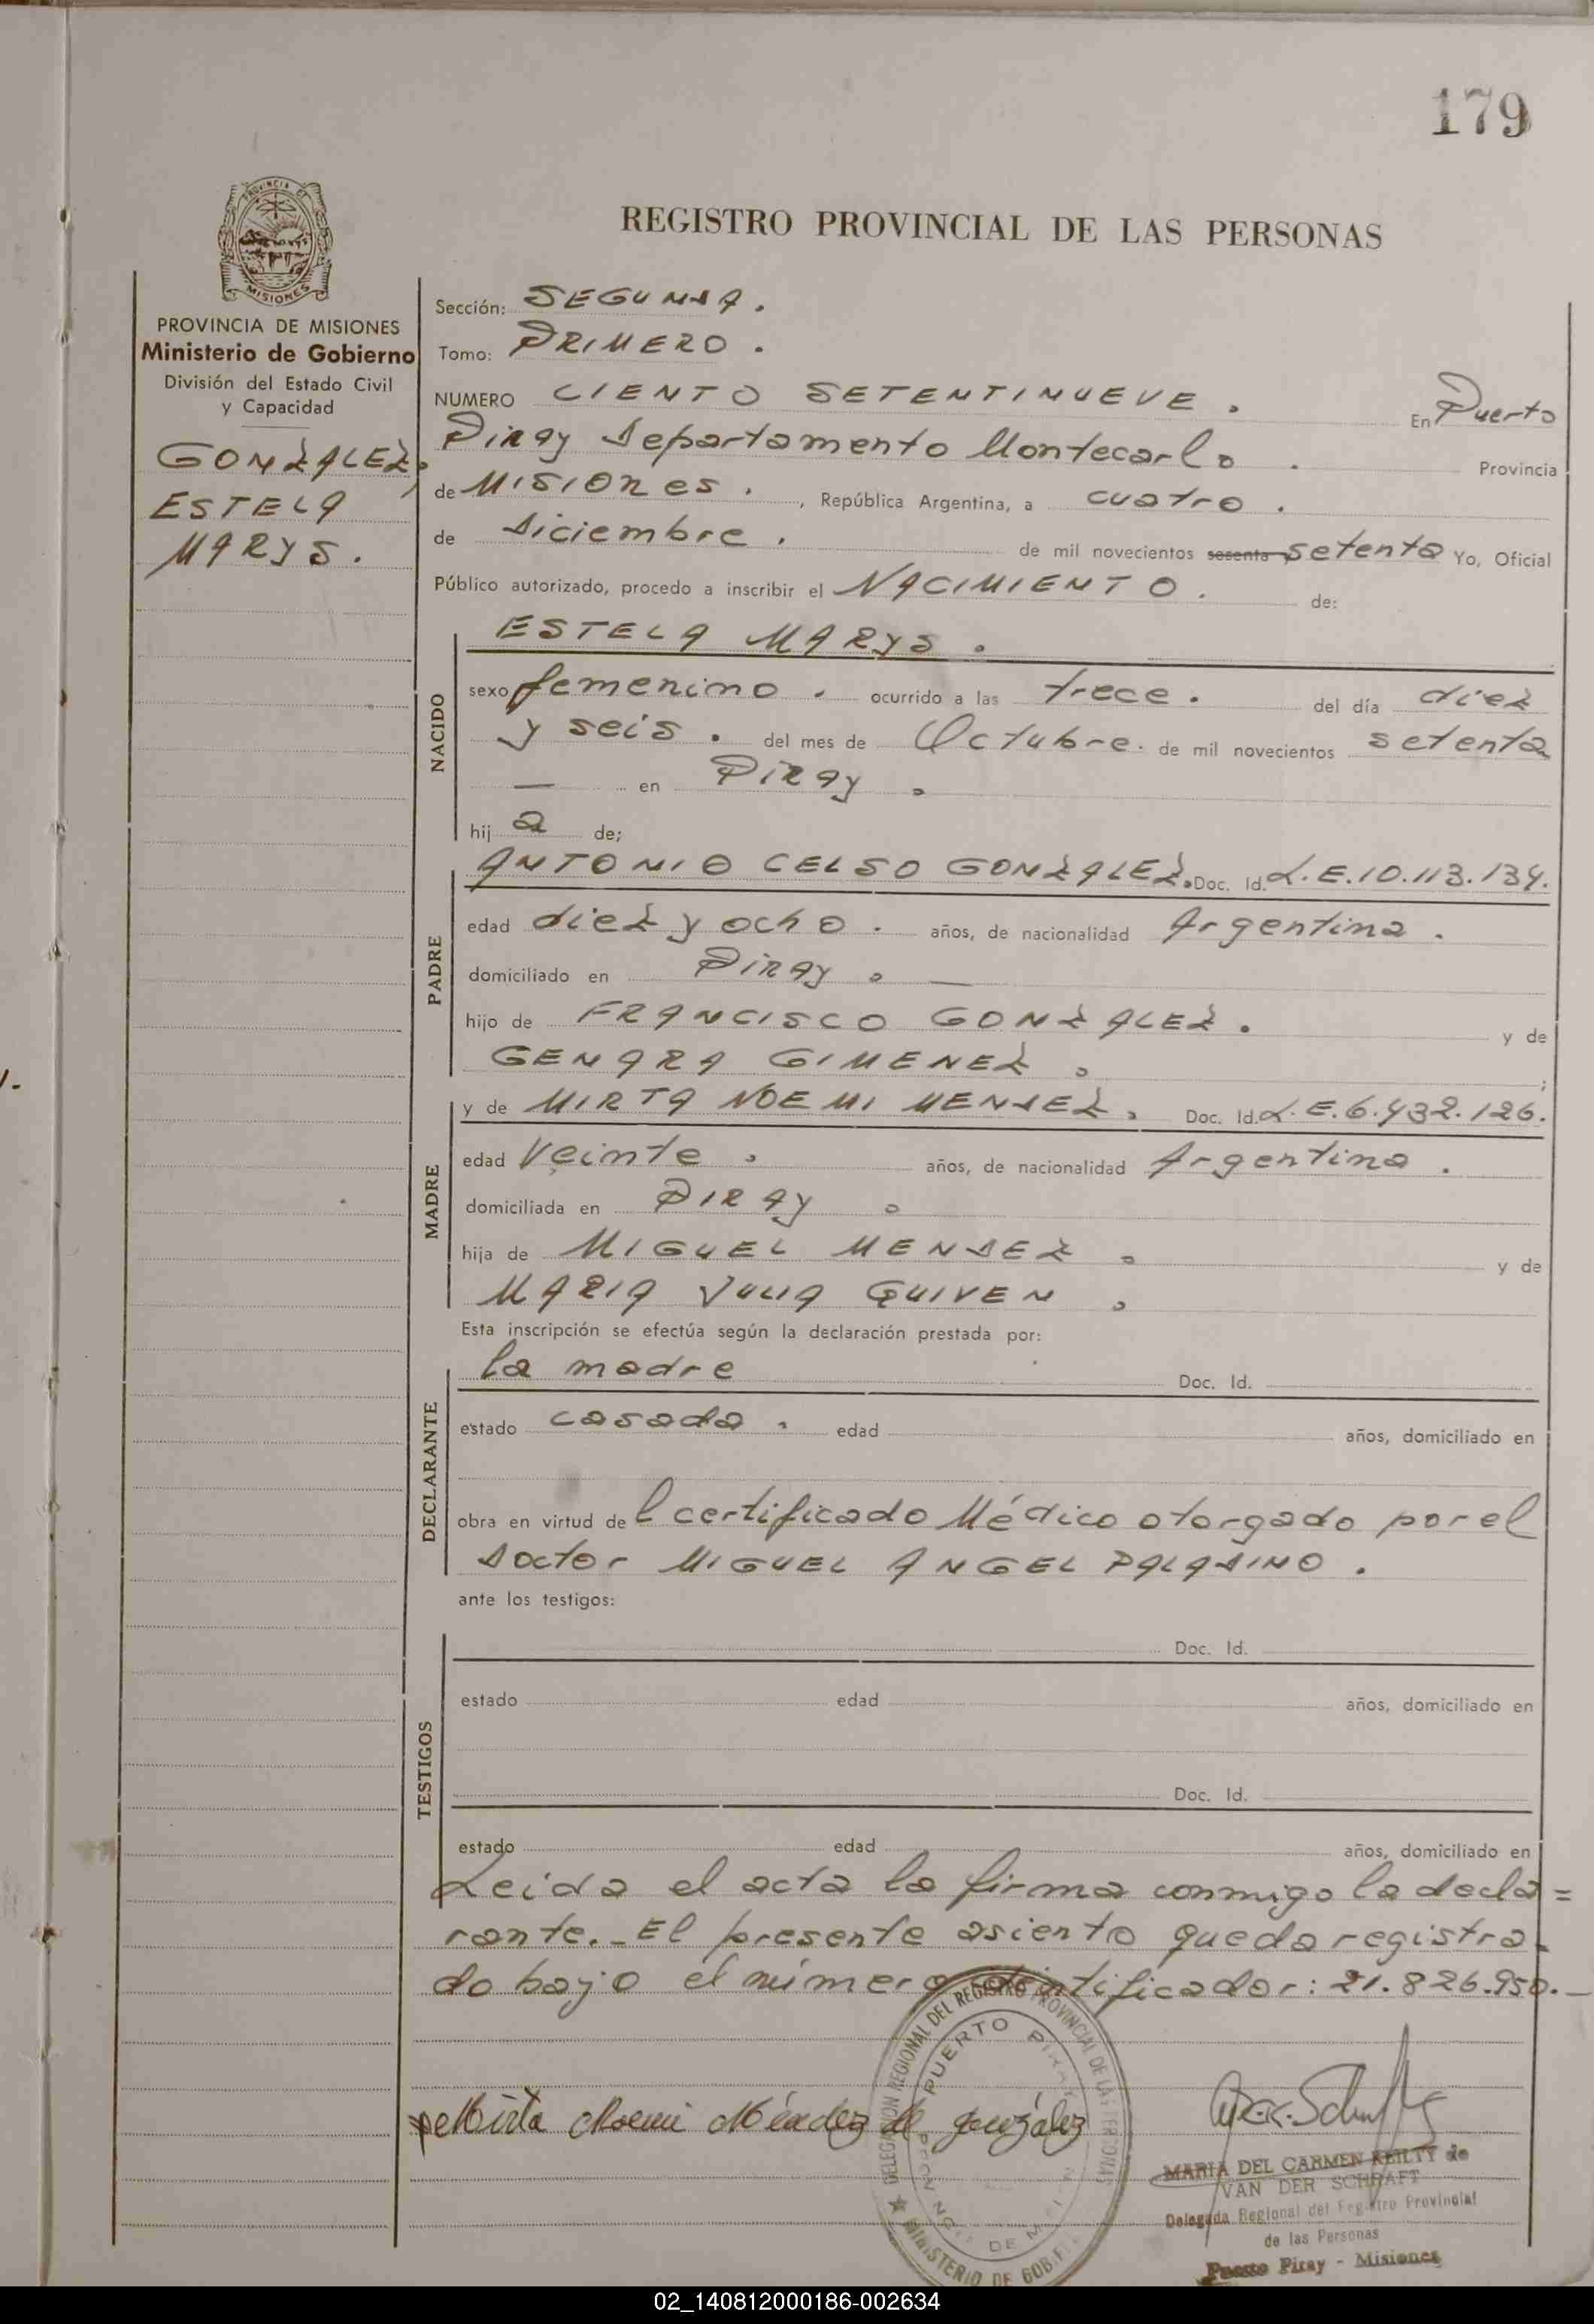 179
PROVINCIA DE
MISIONES
REGISTRO PROVINCIAL DE LAS PERSONAS
PROVINCIA DE MISIONES
Ministerio de Gobierno
División del Estado Civil
y Capacidad
GONZALEZ,
ESTELA
MARYS.
Sección: SEGUNDA.
Tomo: PRIMERO.
NUMERO CIENTO SETENTINUEVE. En Puerto
Piray Departamento Montecarlo. Provincia
de MISIONES., República Argentina, a cuatro.
de Diciembre. de mil novecientos sesenta setenta Yo, Oficial
Público autorizado, procedo a inscribir el NACIMIENTO. de:
ESTELA MARYS.
NACIDO
sexo femenino. ocurrido a las trece. del día diez
y seis. del mes de Octubre. de mil novecientos setenta
— en Piray.
hij a de;
PADRE
ANTONIO CELSO GONZALEZ. Doc. Id. L.E.10.113.134.
edad diez y ocho. años, de nacionalidad Argentina.
domiciliado en Piray. —
hijo de FRANCISCO GONZALEZ. y de
GENARA GIMENEZ. ;
MADRE
y de MIRTA NOEMI MENDEZ. Doc. Id. L.E.6.432.126.
edad Veinte. años, de nacionalidad Argentina.
domiciliada en PIRAY.
hija de MIGUEL MENDEZ. y de
MARIA JULIA QUIVEN.
Esta inscripción se efectúa según la declaración prestada por:
DECLARANTE
la madre Doc. Id.
estado casada. edad años, domiciliado en
obra en virtud de l certificado Médico otorgado por el
Doctor MIGUEL ANGEL PALADINO.
ante los testigos:
TESTIGOS
Doc. Id.
estado edad años, domiciliado en
Doc. Id.
estado edad años, domiciliado en
Leida el acta la firma conmigo la decla=
rante.-El presente asiento queda registra-
do bajo el número identificador: 21.826.950.—
DELEGACION REGIONAL DEL REGISTRO PROVINCIAL DE LAS PERSONAS
PUERTO PIRAY
MINISTERIO DE GOB.
Mirta Noemi Méndez de González
MARIA DEL CARMEN REILTY de
VAN DER SCHRAFT
Delegada Regional del Registro Provincial
de las Personas
Puerto Piray - Misiones
02_140812000186-002634